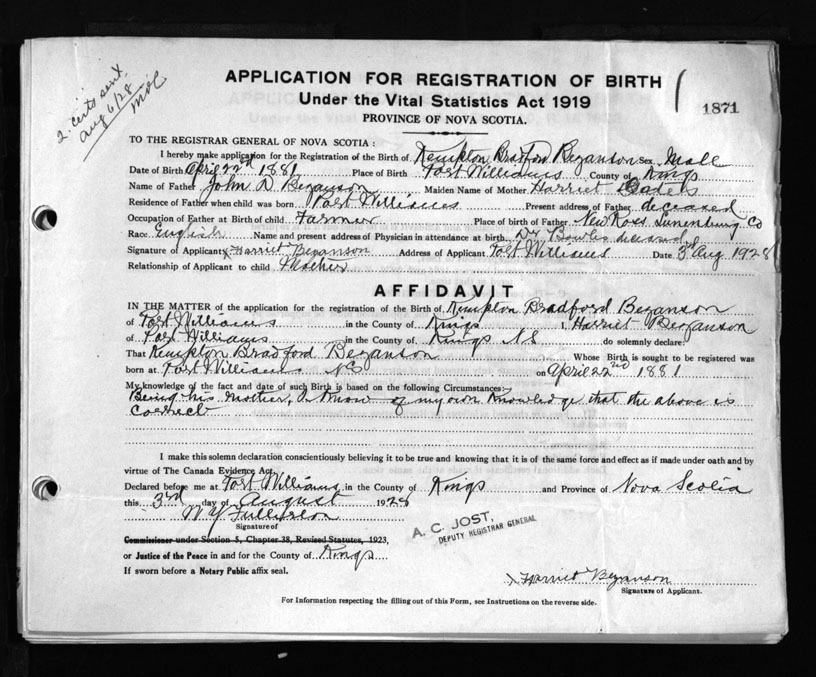 2 certs sent
Aug 6/28
APPLICATION FOR REGISTRATION OF BIRTH
Under the Vital Statistics Act 1919
PROVINCE OF NOVA SCOTIA.
1871
TO THE REGISTRAR GENERAL OF NOVA SCOTIA :
I hereby make application for the Registration of the Birth of Kempton Bradford Bezanson Sex Male
Date of Birth April 22nd 1881 Place of Birth Port Williams County of Kings
Name of Father John D Bezanson Maiden Name of Mother Harriet
Residence of Father when child was born Port Williams Present address of Father deceased
Occupation of Father at Birth of child Farmer Place of birth of Father New Ross Lunenburg Co
Race English Name and present address of Physician in attendance at birth Dr Bowles deceased
Signature of Applicant x Harriet Bezanson Address of Applicant Port Williams Date 3rd Aug 1928
Relationship of Applicant to child Mother
AFFIDAVIT
IN THE MATTER of the application for the registration of the Birth of Kempton Bradford Bezanson
of Port Williams in the County of Kings I, Harriet Bezanson
of Port Williams in the County of Kings NS do solemnly declare:
That Kempton Bradford Bezanson Whose Birth is sought to be registered was
born at Port Williams NS on April 22nd 1881
My knowledge of the fact and date of such Birth is based on the following Circumstances:
Being his mother, I know of my own knowledge that the above is
correct
I make this solemn declaration conscientiously believing it to be true and knowing that it is of the same force and effect as if made under oath and by
virtue of The Canada Evidence Act.
Declared before me at Port Williams in the County of Kings and Province of Nova Scotia
this 3rd day of August 1928
W Y Fullerton
Signature of
A. C. JOST,
DEPUTY REGISTRAR GENERAL
Commissioner under Section 5, Chapter 38, Revised Statutes, 1923,
or Justice of the Peace in and for the County of Kings
If sworn before a Notary Public affix seal.
x Harriet Bezanson
Signature of Applicant.
For Information respecting the filling out of this Form, see Instructions on the reverse side.